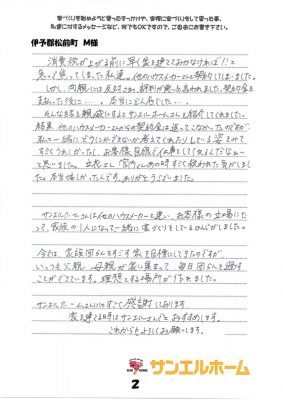 家づくりを始めようと思ったきっかけや、実際に家づくりをして思った事、
私達に対するメッセージなど、何でもOKですので、ご自由にお書き下さい。
伊予郡松前町 M様
消費税が上がる前に早く家を建てておかなければ!!と
急いで焦ってしまった私達。他のハウスメーカーさんと契約してしまいました。
しかし、両親には反対され、評判が悪いと言われました。契約金を
支払った後に・・・。本当にどん底でした・・・
そんな時
結果、他のハウスメーカーからの契約金は返ってこなかったのですが、
私と一緒にどうにかできないか考えてくれたりしている姿をみて
すごくうれしかったし、お客様目線で仕事としてくれるんだなぁー
と思いました。
た。本当に嬉しかったんです。ありがとうございました。
サンエルホームさんは他のハウスメーカーと違い、お客様の立場にた
って、家族の1人になって一緒に家づくりをしているかんじがしました。
今では、家族団らんをすごす家を目標にしてきたのですが
いっつも父親、母親が家に集まって、毎日団らんを過す
ことができています。理想とする場所が作れました。
サンエルホームさんにはすごく感謝しております。
家を建てる時はサンエルさんをおすすめします。
これからもよろしくお願いします。
サンエルホーム
2